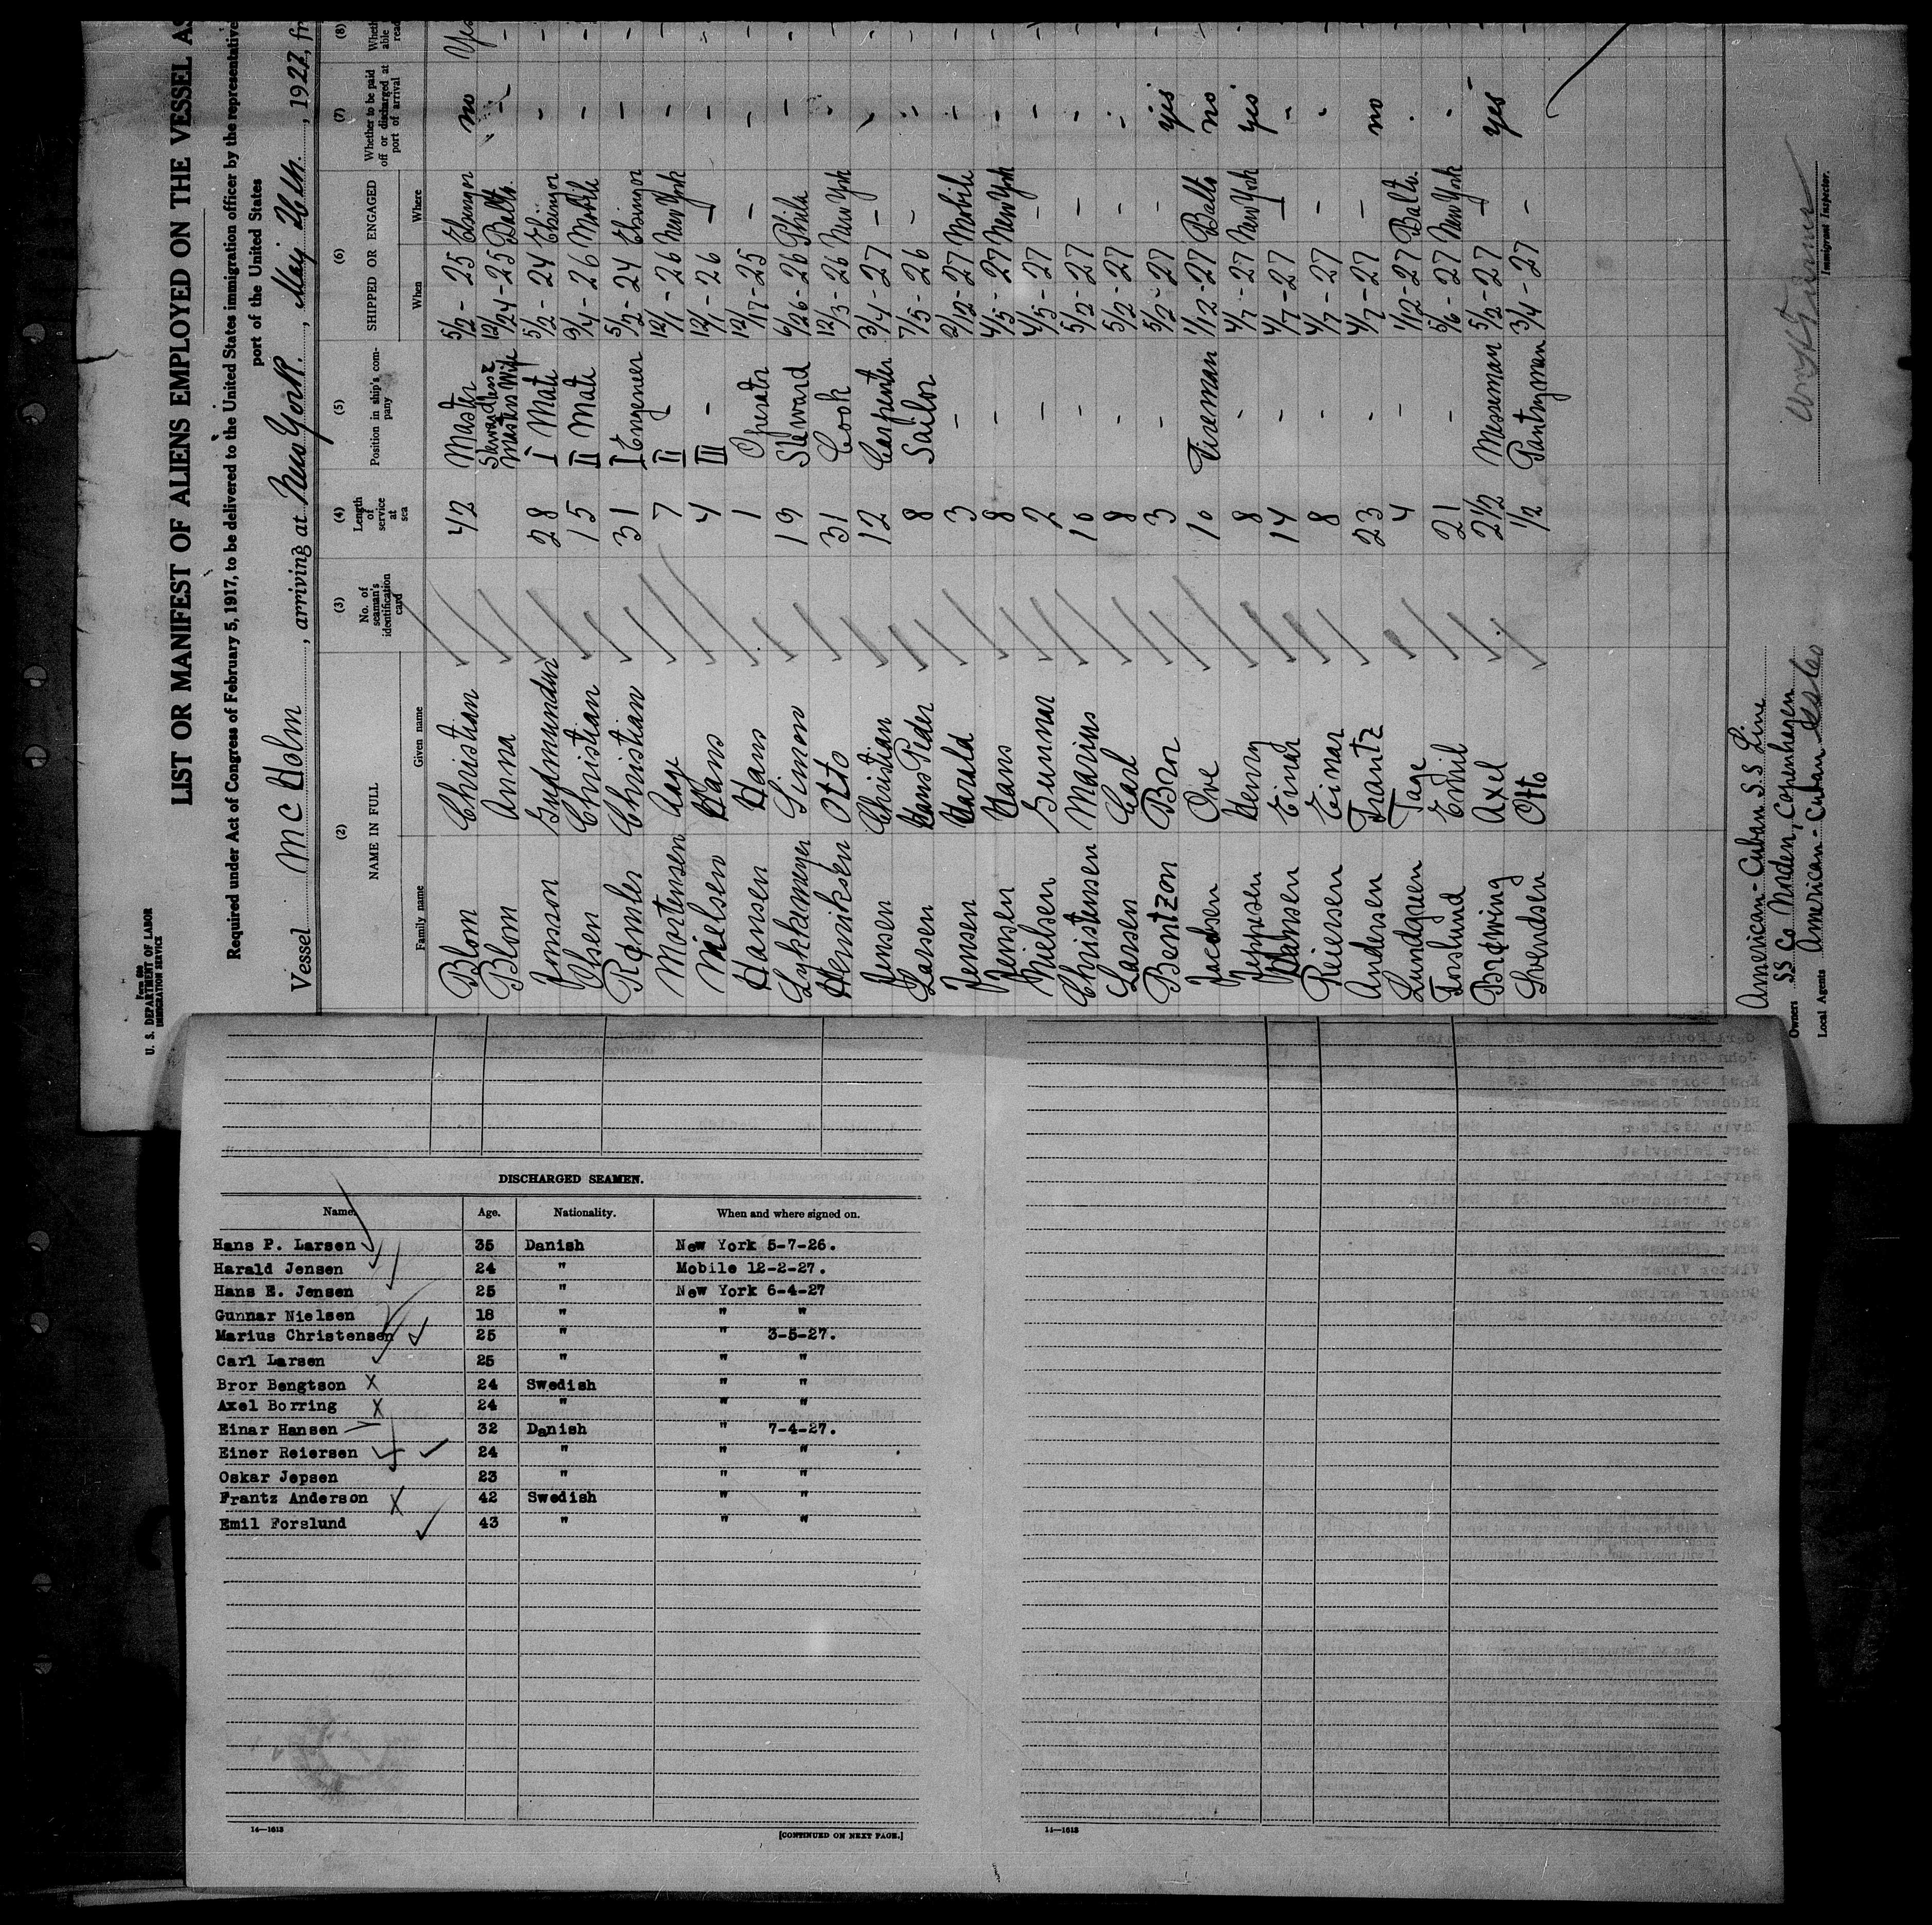 Form 680
U. S. DEPARTMENT OF LABOR
IMMIGRATION SERVICE
LIST OR MANIFEST OF ALIENS EMPLOYED ON THE VESSEL AS
Required under Act of Congress of February 5, 1917, to be delivered to the United States immigration officer by the representative
port of the United States
Vessel Mc Holm, arriving at New York., May 26th., 1927, fr
(2) (3) (4) (5) (6) (7) (8)
NAME IN FULL No. of seaman's identification card Length of service at sea Position in ship's company SHIPPED OR ENGAGED Whether to be paid off or discharged at port of arrival Wheth able rea
Family name Given name When Where
Blom Christian 42 Master 5/2 - 25 Elsinor no Yes
Blom Anna Stewardess & Masters Wife 12/24 - 25 Balto. - -
Jonsson Gudmundur 28 I Mate 5/2 - 24 Elsinor - -
Olsen Christian 15 II Mate 3/4 - 26 Mobile - -
Rømler Christian 31 I Engeneer 5/2 - 24 Elsinor - -
Mortensen Aage 7 II - 12/1 - 26 New York - -
Nielsen Hans 4 III - 12/1 - 26 - - -
Hansen Hans 1 Operator 12/17 - 25 - - -
Lykkemeyer Simon 19 Steward 6/26 - 26 Phila - -
Henriksen Otto 31 Cook 12/3 - 26 New York - -
Jensen Christian 12 Carpenter 3/4 - 27 - - -
Larsen Hans Peder 8 Sailor 7/5 - 26 - - -
Jensen Harald 3 - 2/12 - 27 Mobile - -
Jensen Hans 8 - 4/5 - 27 New York - -
Nielsen Gunnar 2 - 4/5 - 27 - - -
Christensen Marius 10 - 5/2 - 27 - - -
Larsen Carl 8 - 5/2 - 27 - - -
Bentzon Bror 3 - 5/2 - 27 - yes -
Jacobsen Ove 10 Fireman 1/12 - 27 Balto no -
Jeppesen Henry 8 - 4/7 - 27 New York yes -
Hansen Einar 14 - 4/7 - 27 - - -
Reiersen Einar 8 - 4/7 - 27 - - -
Andersen Frantz 23 - 4/7 - 27 - no -
Lundgreen Tage 4 - 1/12 - 27 Balto. - -
Forslund Emil 21 - 5/6 - 27 New York - -
Brøwing Axel 2 1/2 Messeman 5/2 - 27 - yes -
Svendsen Otto 1/2 Pantryman 3/4 - 27 - -
American-Cuban S.S Line
Owners SS Co Norden, Copenhagen
Local Agents American-Cuban SS Co
Immigrant Inspector.
DISCHARGED SEAMEN.
Name. Age. Nationality. When and where signed on.
Hans P. Larsen 35 Danish New York 5-7-26.
Harald Jensen 24 " Mobile 12-2-27.
Hans E. Jensen 25 " New York 6-4-27
Gunnar Nielsen 18 " " "
Marius Christensen 25 " " 3-5-27.
Carl Larsen 25 " " "
Bror Bengtson X 24 Swedish " "
Axel Borring X 24 " " "
Einar Hansen 32 Danish " 7-4-27.
Einer Reiersen 24 " " "
Oskar Jepsen 23 " " "
Frantz Anderson X 42 Swedish " "
Emil Forslund 43 " " "
14—1613
[CONTINUED ON NEXT PAGE.]
14—1613